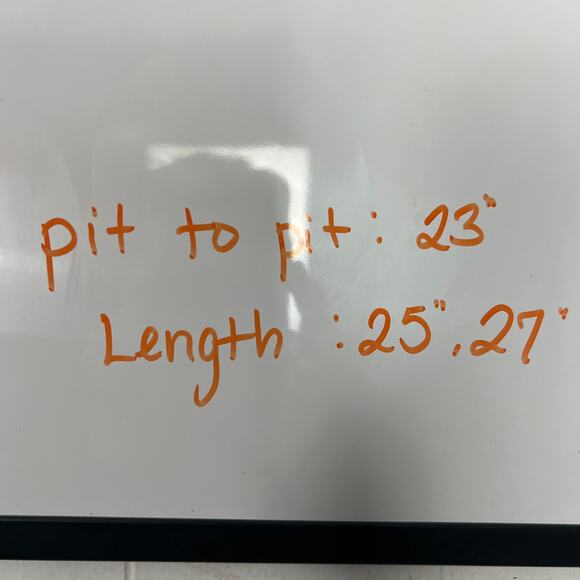 pit to pit: 23"
Length : 25", 27"